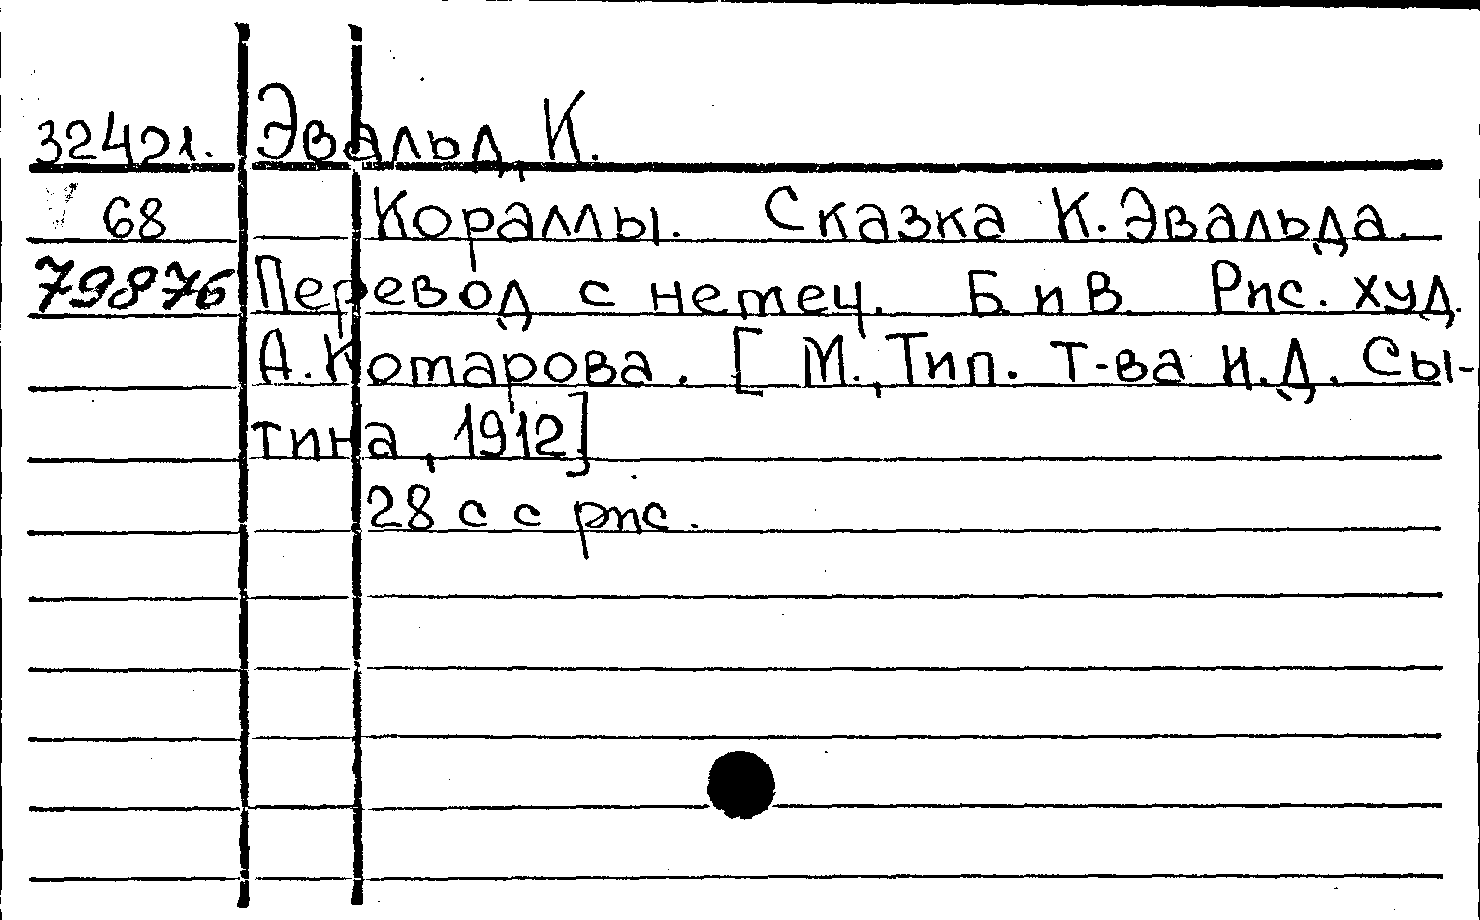 32421. Эвальд, К.
68 Кораллы. Сказка К. Эвальда.
79876 Перевод с немец. Б и В. Рис. худ.
А. Комарова. [М., Тип. Т-ва И.Д. Сы-
тина, 1912]
28 с с рис.